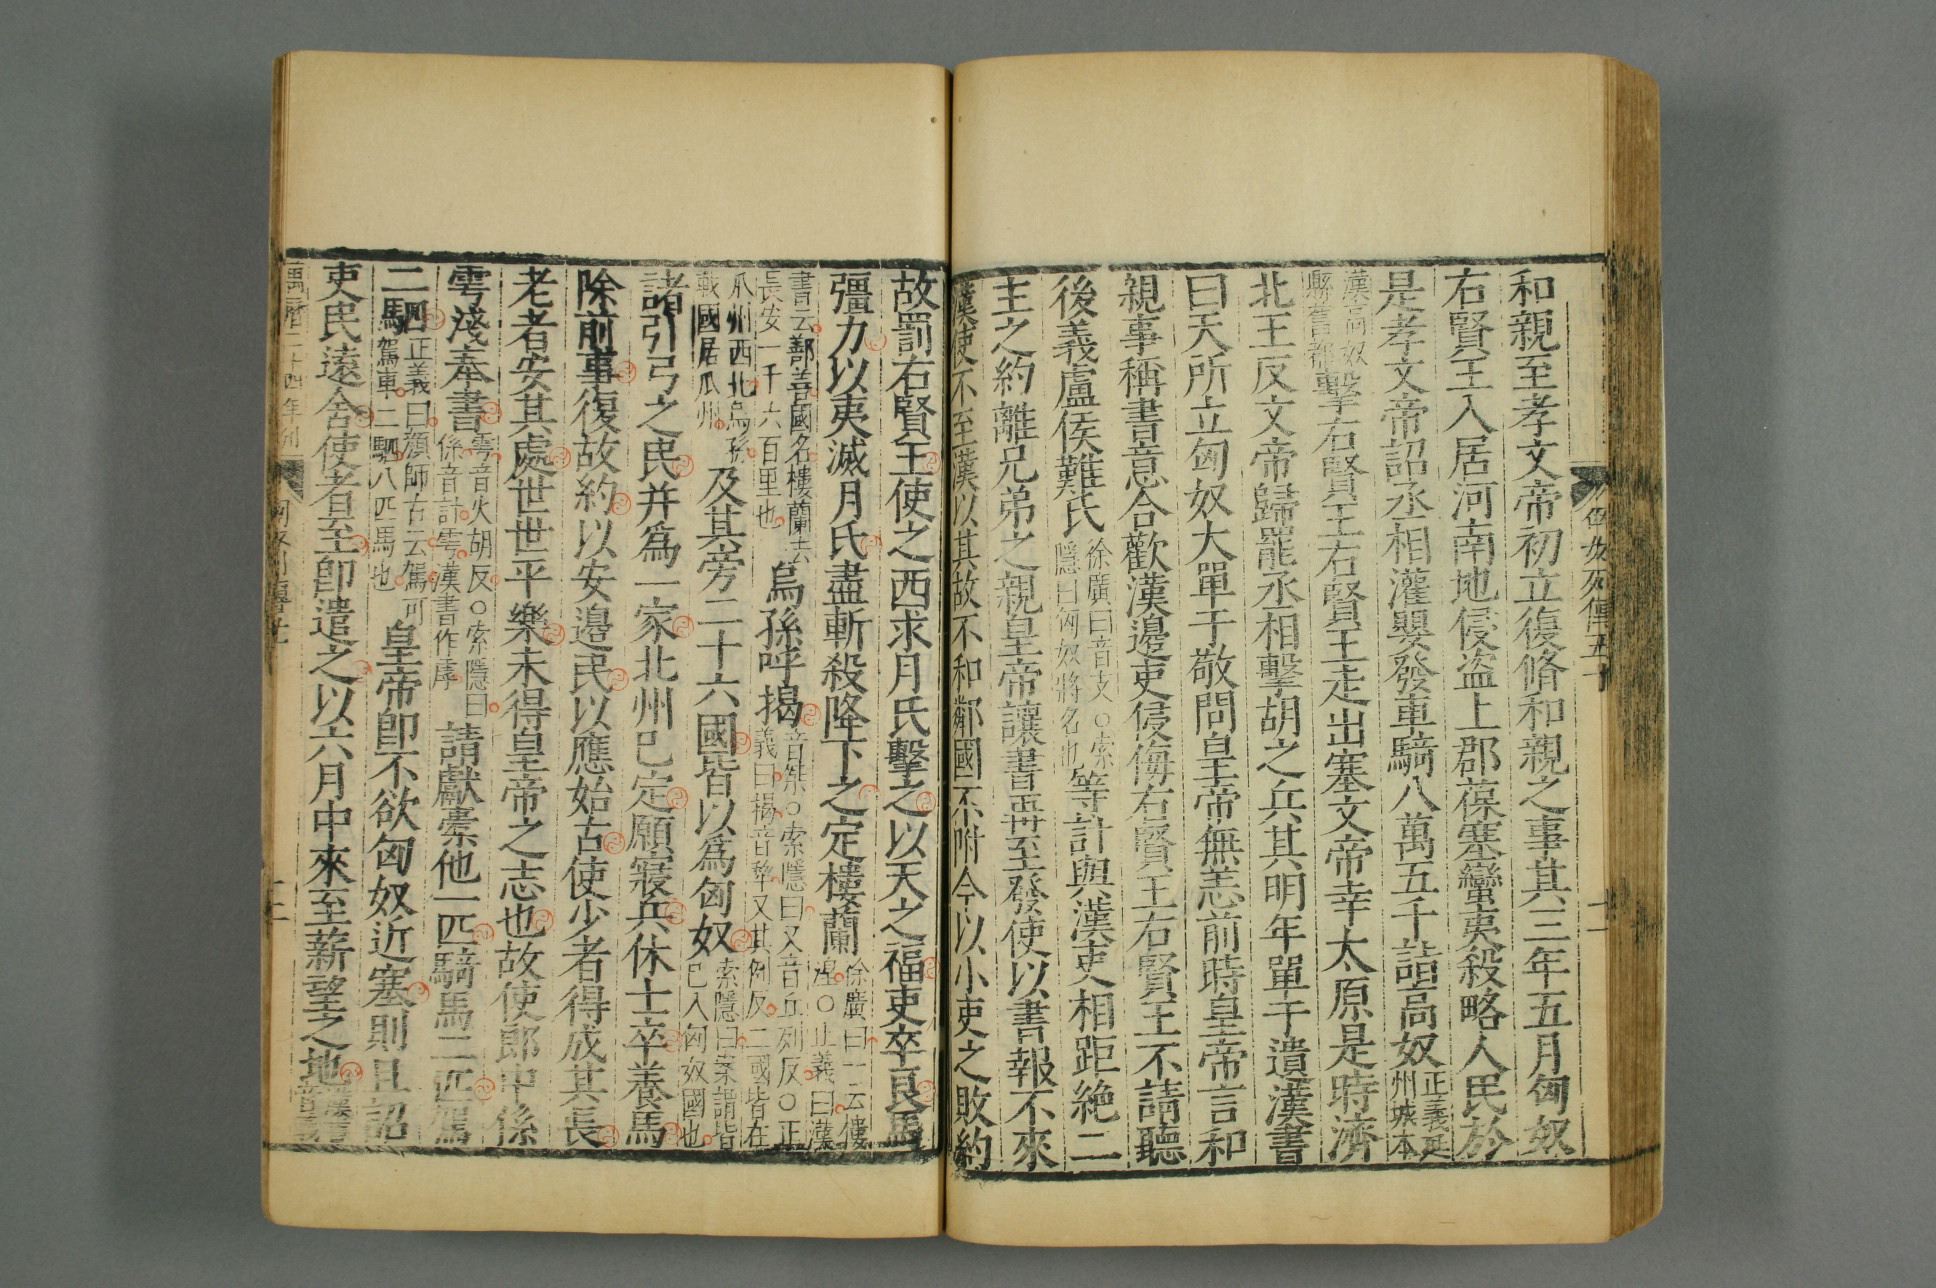 匈奴列傳五十
十一
和親至孝文帝初立復脩和親之事其三年五月匈奴
右賢王入居河南地侵盗上郡葆塞蠻夷殺略人民於
是孝文帝詔丞相灌嬰發車騎八萬五千詣高奴正義延州城本
漢高奴縣舊都擊右賢王右賢王走出塞文帝幸太原是時濟
北王反文帝歸罷丞相擊胡之兵其明年單于遺漢書
曰天所立匈奴大單于敬問皇帝無恙前時皇帝言和
親事稱書意合歡漢邊吏侵侮右賢王右賢王不請聽
後義盧侯難氏徐廣曰音支○索隱曰匈奴將名也等計與漢吏相距絶二
主之約離兄弟之親皇帝讓書再至發使以書報不來
漢使不至漢以其故不和鄰國不附今以小吏之敗約
故罰右賢王使之西求月氏擊之以天之福吏卒良馬
彊力以夷滅月氏盡斬殺降下之定樓蘭徐廣曰一云樓湟○正義曰漢
書云鄯善國名樓蘭去長安一千六百里也烏孫呼揭音桀○索隱曰又音丘列反○正義曰揭音犂又其例反二國皆在
瓜州西北烏孫戰國居瓜州及其旁二十六國皆以爲匈奴索隱曰案謂皆已入匈奴國也
諸引弓之民并爲一家北州已定願寢兵休士卒養馬
除前事復故約以安邊民以應始古使少者得成其長
老者安其處世世平樂未得皇帝之志也故使郎中係
雩淺奉書雩音火胡反○索隱曰係音計雩漢書作虖請獻橐他一匹騎馬二匹駕
二駟正義曰顔師古云駕可駕車二駟八匹馬也皇帝即不欲匈奴近塞則且詔
吏民遠舍使者至即遣之以六月中來至薪望之地
萬曆二十四年刊
匈奴列傳
十二